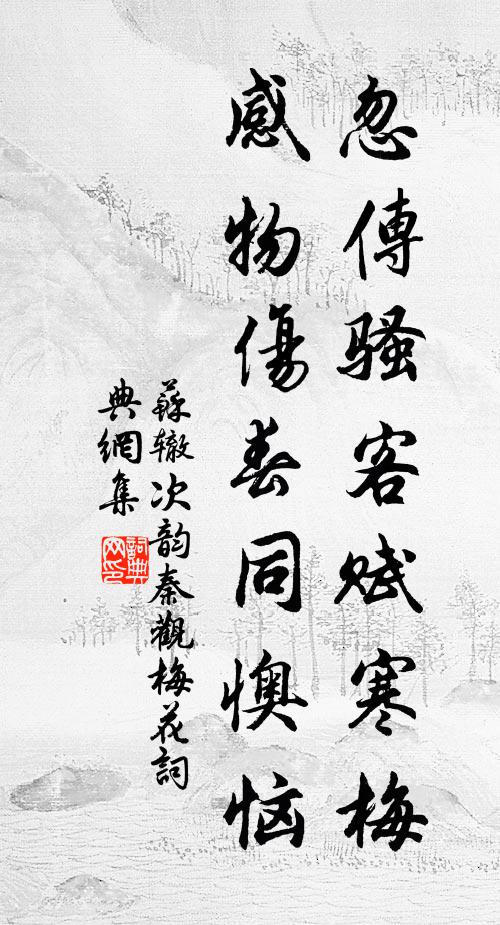 忽傳骚客赋寒梅
感物傷春同懊恼
蘇辙次韵秦觀梅花詞
典網集
詞典
网印